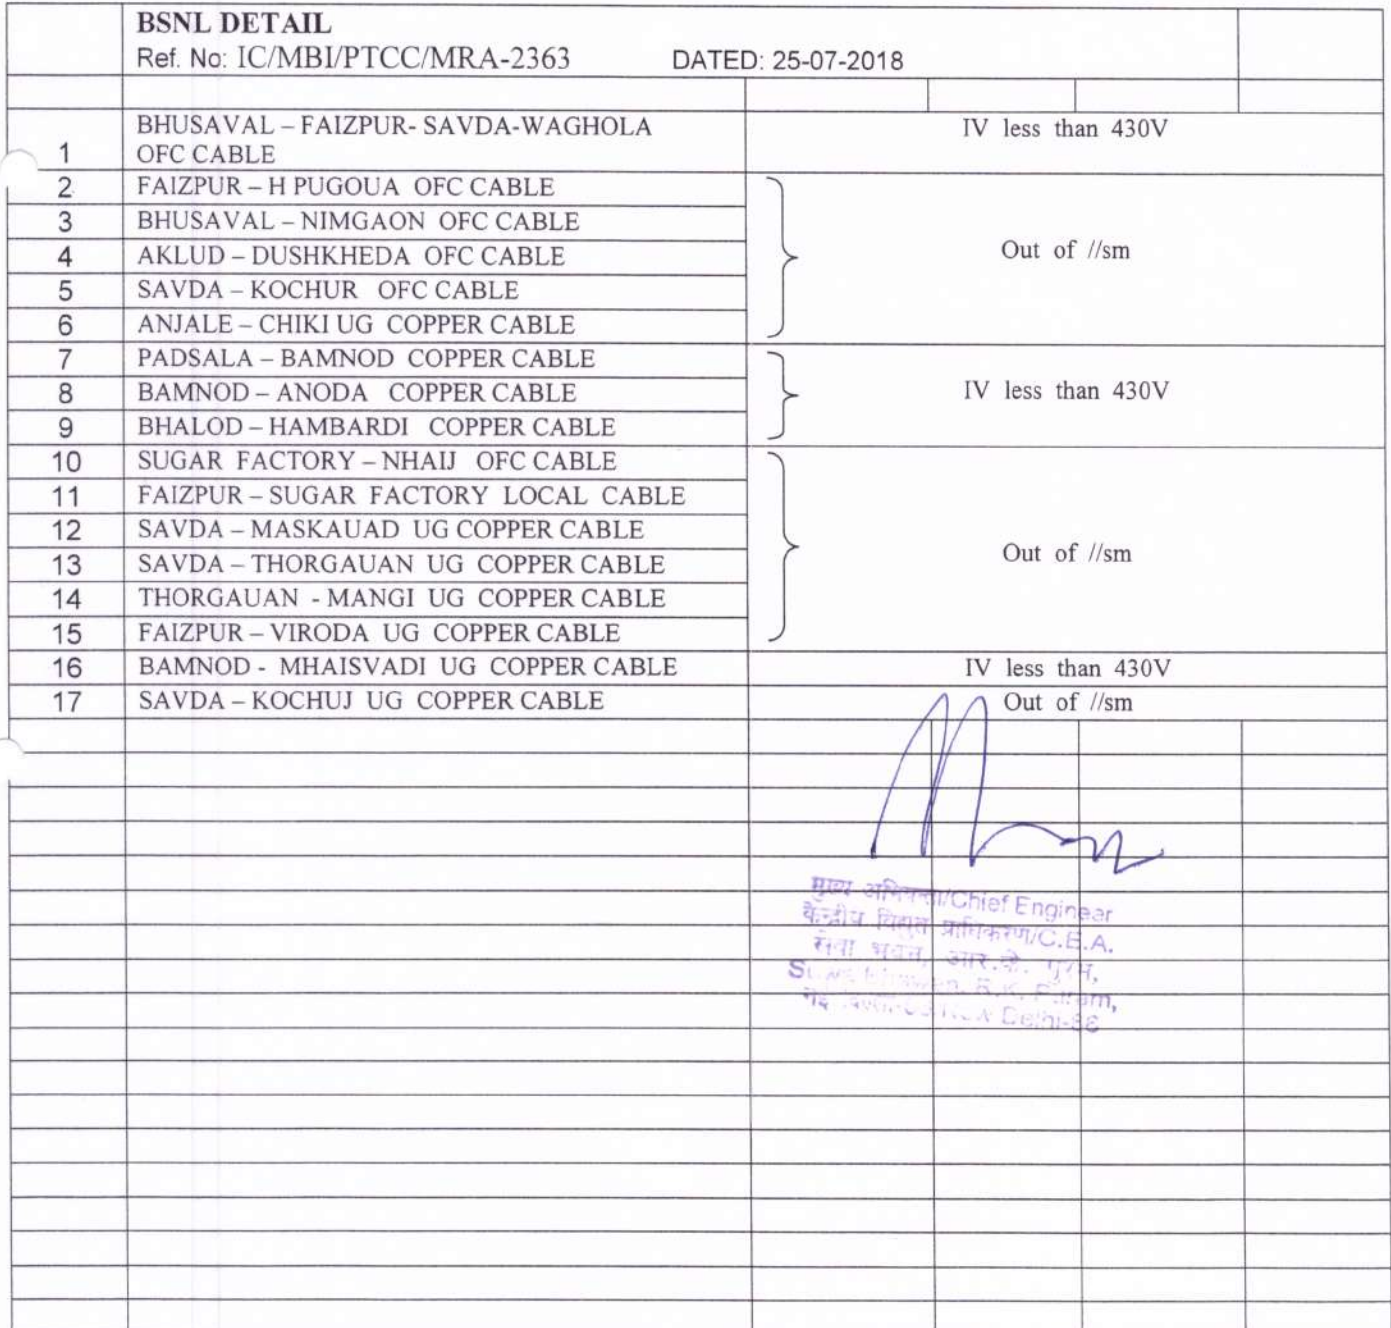 BSNL DETAIL
Ref. No: IC/MBI/PTCC/MRA-2363 DATED: 25-07-2018
1 BHUSAVAL – FAIZPUR- SAVDA-WAGHOLA
OFC CABLE
IV less than 430V
2 FAIZPUR – H PUGOUA OFC CABLE
3 BHUSAVAL – NIMGAON OFC CABLE
4 AKLUD – DUSHKHEDA OFC CABLE
5 SAVDA – KOCHUR OFC CABLE
6 ANJALE – CHIKI UG COPPER CABLE
Out of //sm
7 PADSALA – BAMNOD COPPER CABLE
8 BAMNOD – ANODA COPPER CABLE
9 BHALOD – HAMBARDI COPPER CABLE
IV less than 430V
10 SUGAR FACTORY – NHAIJ OFC CABLE
11 FAIZPUR – SUGAR FACTORY LOCAL CABLE
12 SAVDA – MASKAUAD UG COPPER CABLE
13 SAVDA – THORGAUAN UG COPPER CABLE
14 THORGAUAN - MANGI UG COPPER CABLE
15 FAIZPUR – VIRODA UG COPPER CABLE
Out of //sm
16 BAMNOD - MHAISVADI UG COPPER CABLE IV less than 430V
17 SAVDA – KOCHUJ UG COPPER CABLE Out of //sm
मुख्य अभियन्ता/Chief Engineer
केन्द्रीय विद्युत प्राधिकरण/C.E.A.
सेवा भवन, आर.के. पुरम,
R.K. Puram,
Delhi-66